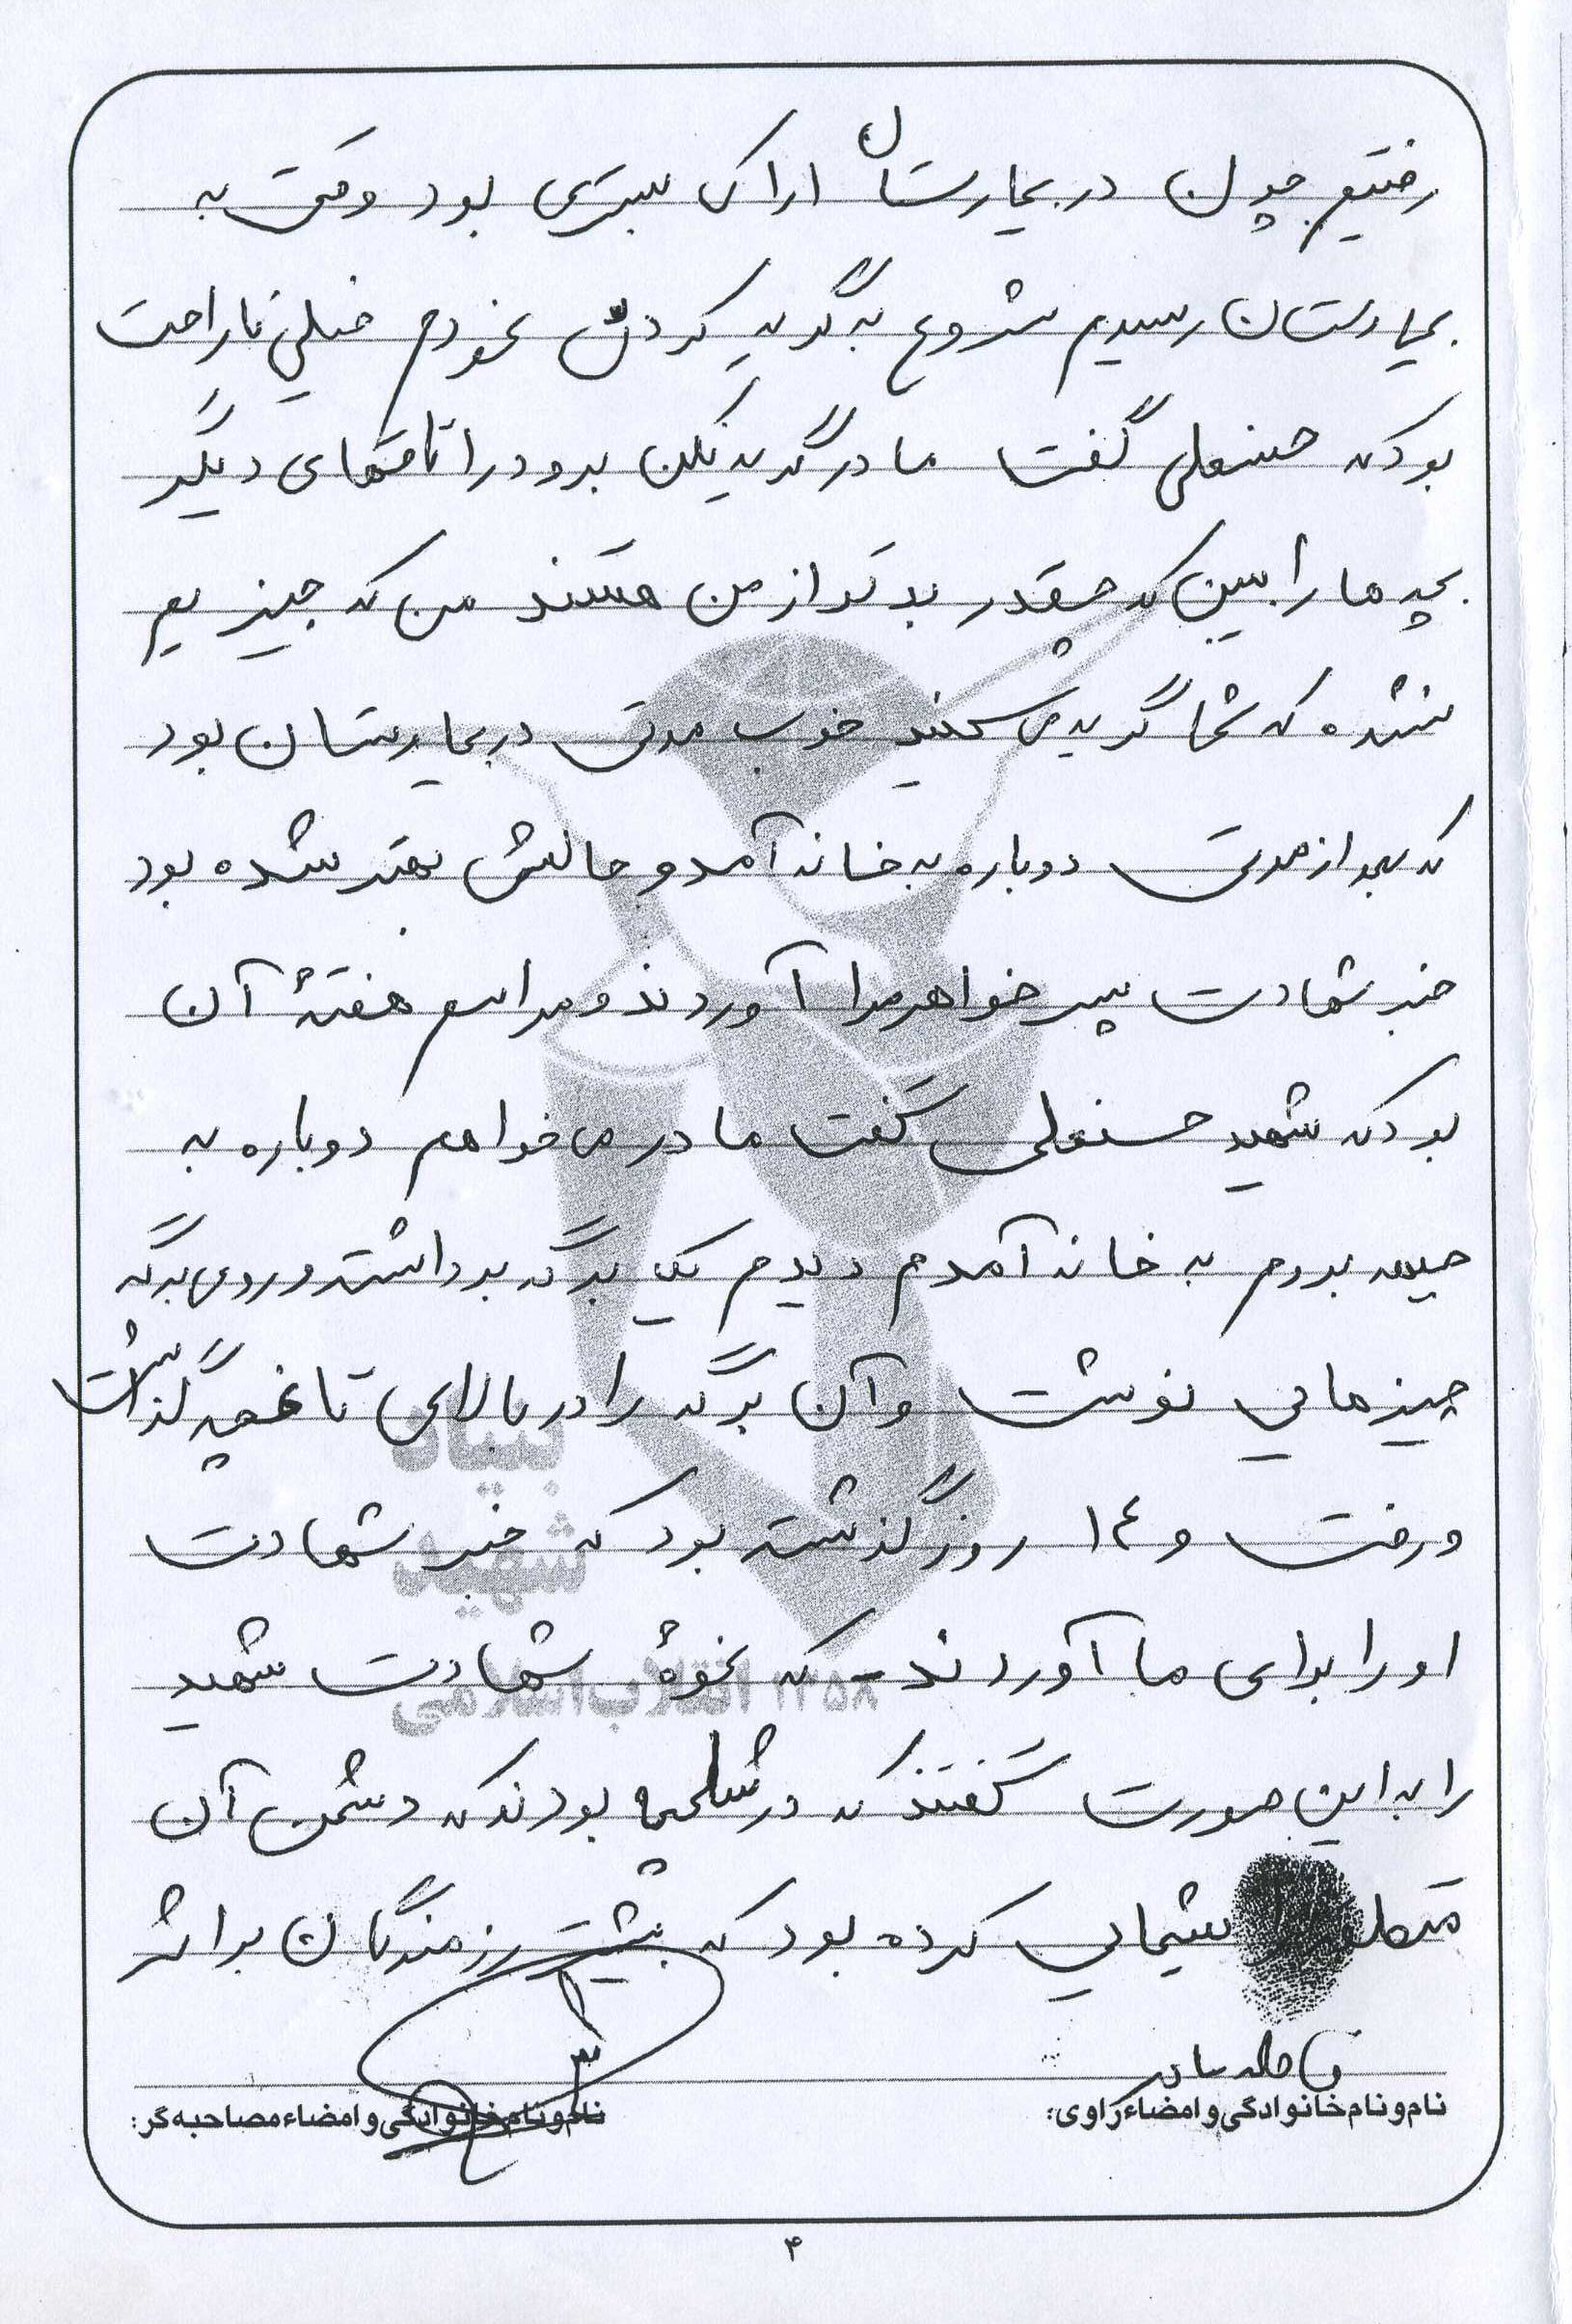 رفتیم چون در بیمارستان اراک بستری بود وقتی به
بیمارستان رسیدیم شروع به گریه کردن نمودم خیلی ناراحت
بود که حسنعلی گفت مادر گریه نکن برو در اتاقهای دیگر
بچه ها را ببین که چقدر بدتر از من هستند من که چیزیم
نشده که شما گریه می کنید خوب مدتی در بیمارستان بود
که بعد از مدتی دوباره به خانه آمد و حالش بهتر شده بود
خبر شهادت پسر خواهر مرا آوردند و مراسم هفتهٔ آن
بود که شهید حسنعلی گفت مادر می خواهم دوباره به
جبهه بروم به خانه آمدم دیدم یک برگه برداشته و روی برگه
چیزهایی نوشت و آن برگه را در بالای تاغچه گذاشت
و رفت و ۱۴ روز گذشته بود که خبر شهادت
او را برای ما آوردند - که نحوهٔ شهادت شهید
را به این صورت گفتند که در شلمچه بودند که دشمن آن
منطقه را شیمایی کرده بود که بیشتر رزمندگان بر اثر
نام و نام خانوادگی و امضاء راوی:
نام و نام خانوادگی و امضاء مصاحبه گر:
۴
بنیاد
شهید
انقلاب اسلامی ۱۳۵۸